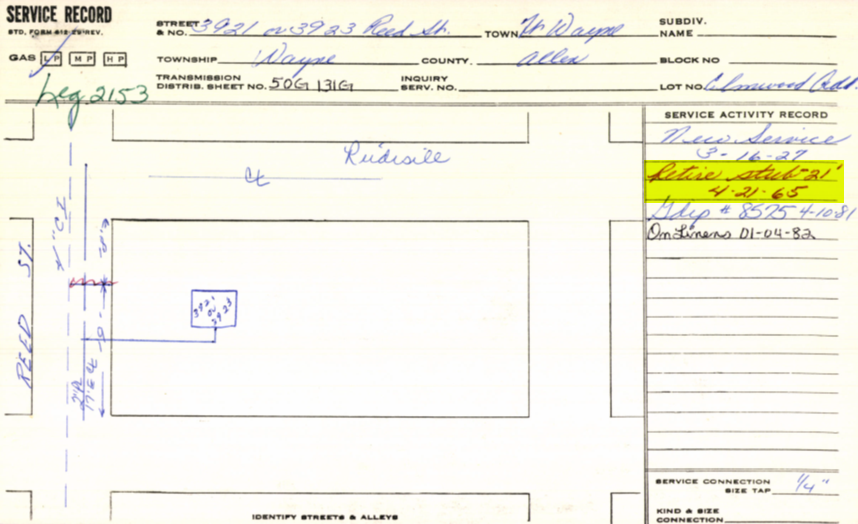 SERVICE RECORD
STD. FORM 412-29-REV.
GAS LP MP HP
Leg. 2153
STREET & NO. 3921 or 3923 Reed St. TOWN Ft Wayne SUBDIV. NAME
TOWNSHIP Wayne COUNTY. Allen BLOCK NO
TRANSMISSION DISTRIB. SHEET NO. 50G 131G INQUIRY SERV. NO. LOT NO. Elmwood Add.
SERVICE ACTIVITY RECORD
New Service
3-16-27
Retire stub-21'
4-21-65
# 8575 4-10-81
On Linens 01-04-82
Rudisill
REED ST.
4" C.I.
3921
or
3923
SERVICE CONNECTION
SIZE TAP 1/4"
KIND & SIZE
CONNECTION
IDENTIFY STREETS & ALLEYS